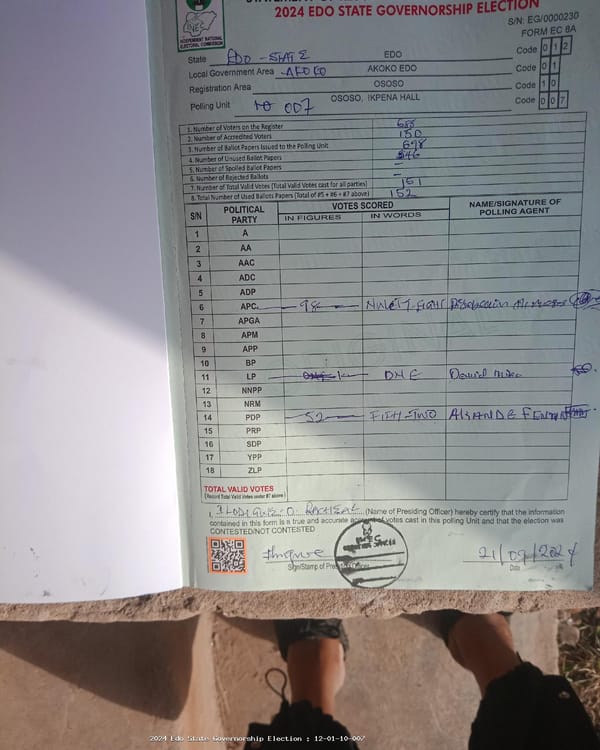 2024 EDO STATE GOVERNORSHIP ELECTION
S/N: EG/0000230
FORM EC 8A
INEC
INDEPENDENT NATIONAL ELECTORAL COMMISSION
State EDO-STATE EDO Code 0 1 2
Local Government Area AKOKO EDO Code 0 1
Registration Area OSOSO Code 1 0
Polling Unit 007 OSOSO, IKPENA HALL Code 0 0 7
1. Number of Voters on the Register
2. Number of Accredited Voters 150
3. Number of Ballot Papers Issued to the Polling Unit 698
4. Number of Unused Ballot Papers 546
5. Number of Spoiled Ballot Papers –
6. Number of Rejected Ballots –
7. Number of Total Valid Votes (Total Valid Votes cast for all parties) 151
8. Total Number of Used Ballots Papers (Total of #5 + #6 + #7 above) 152
S/N POLITICAL PARTY VOTES SCORED NAME/SIGNATURE OF POLLING AGENT
IN FIGURES IN WORDS
1 A
2 AA
3 AAC
4 ADC
5 ADP
6 APC 98 NINETY EIGHT
7 APGA
8 APM
9 APP
10 BP
11 LP 1 ONE David
12 NNPP
13 NRM
14 PDP 52 FIFTY-TWO
15 PRP
16 SDP
17 YPP
18 ZLP
TOTAL VALID VOTES
(Record Total Valid Votes under #7 above)
I, O. RACHEAL (Name of Presiding Officer) hereby certify that the information
contained in this form is a true and accurate account of votes cast in this polling Unit and that the election was
CONTESTED/NOT CONTESTED
21/09/2024
Sign/Stamp of Presiding Officer Date
2024 Edo State Governorship Election : 12-01-10-007